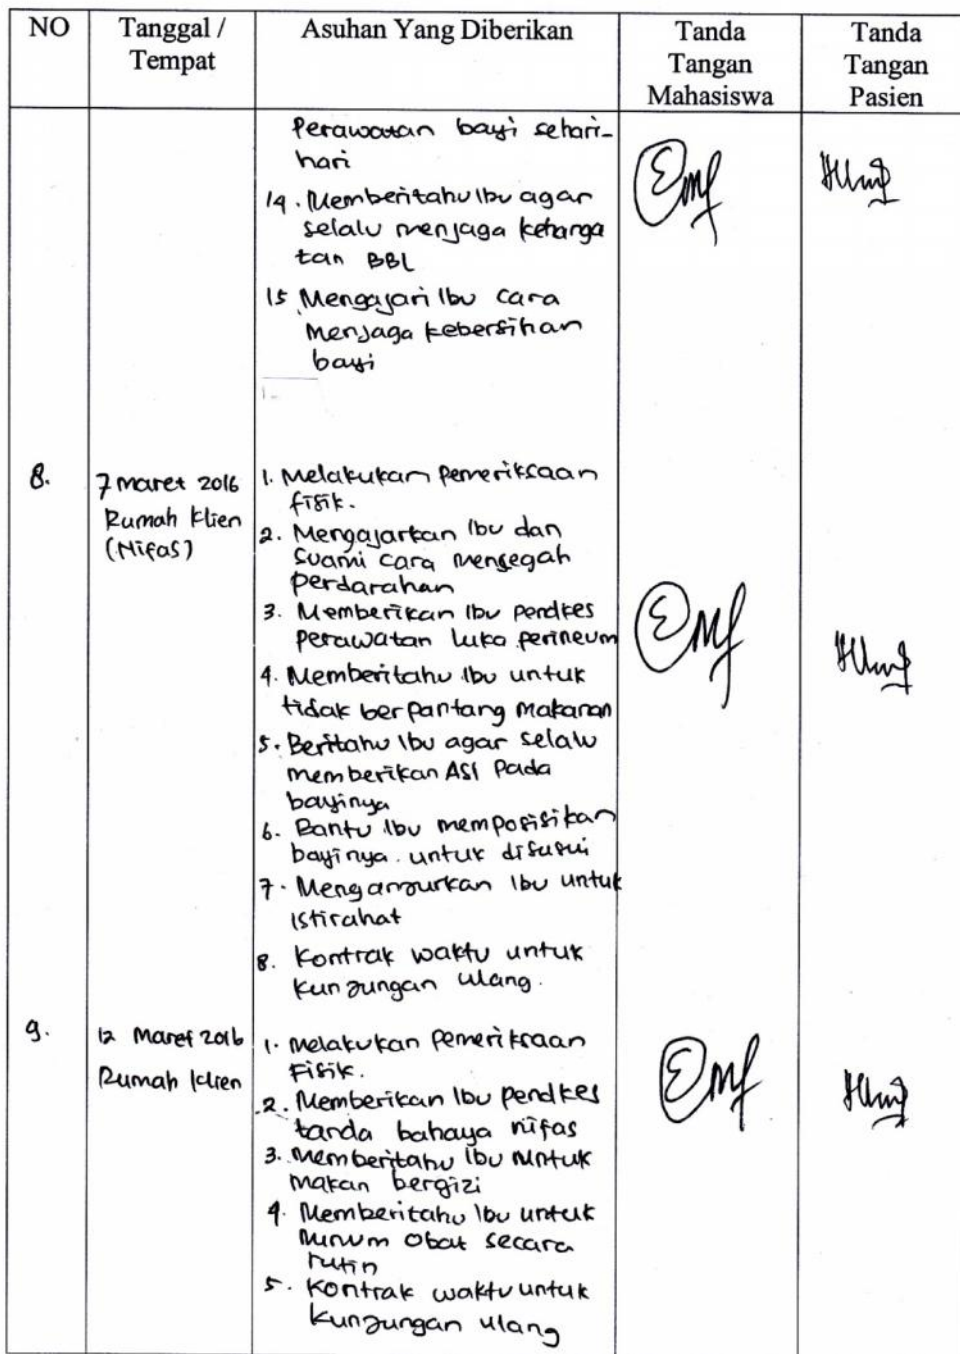 NO
Tanggal /
Tempat
Asuhan Yang Diberikan
Tanda
Tangan
Mahasiswa
Tanda
Tangan
Pasien
Perawatan bayi sehari-
hari
14. Memberitahu Ibu agar
selalu menjaga kehanga
tan BBL
15 Mengajari Ibu cara
Menjaga kebersihan
bayi
8.
7 maret 2016
Rumah Klien
(Nifas)
1. Melakukan Pemeriksaan
fisik.
2. Mengajarkan Ibu dan
Suami cara mencegah
perdarahan
3. Memberikan Ibu pendkes
perawatan luka perineum
4. Memberitahu Ibu untuk
tidak berpantang makanan
5. Beritahu Ibu agar selalu
memberikan ASI Pada
bayinya
6. Bantu Ibu memposisikan
bayinya untuk disusui
7. Menganjurkan Ibu untuk
istirahat
8. Kontrak waktu untuk
kunjungan ulang.
9.
12 Maret 2016
Rumah Klien
1. Melakukan Pemeriksaan
Fisik.
2. Memberikan Ibu pendkes
tanda bahaya nifas
3. Memberitahu Ibu untuk
makan bergizi
4. Memberitahu Ibu untuk
Minum obat secara
rutin
5. Kontrak waktu untuk
Kunjungan ulang